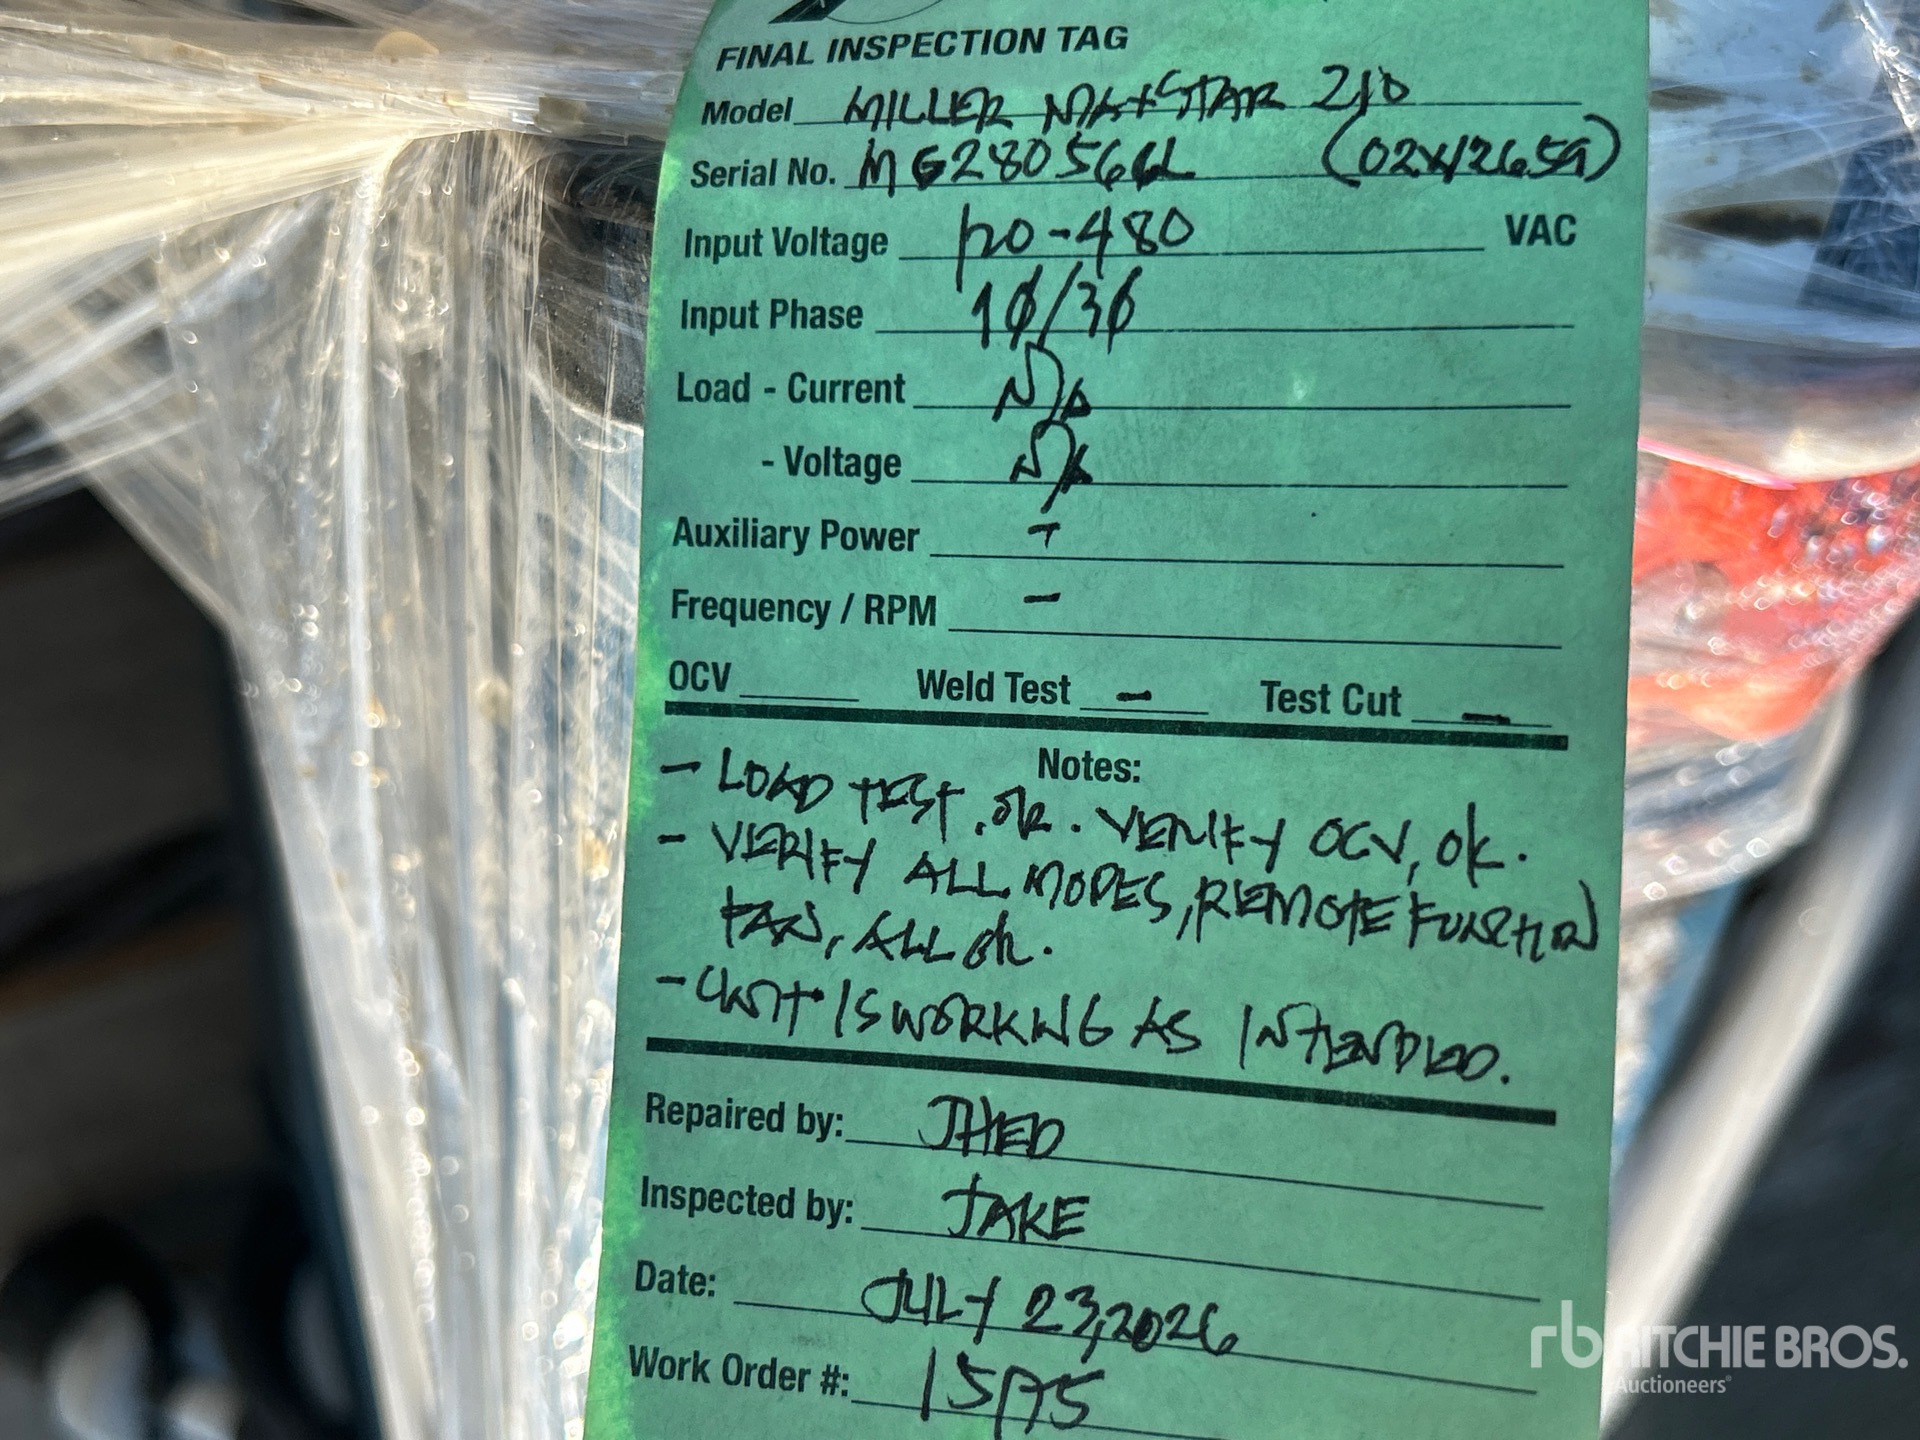 FINAL INSPECTION TAG
Model MILLER MAXSTAR 210
Serial No. MG280566L (02X12659)
Input Voltage 120-480 VAC
Input Phase 1φ/3φ
Load - Current N/A
- Voltage N/A
Auxiliary Power -
Frequency / RPM -
OCV Weld Test - Test Cut -
Notes:
- LOAD TEST, OK. VERIFY OCV, OK.
- VERIFY ALL MODES, REMOTE FUNCTION
FAN, ALL OK.
- UNIT IS WORKING AS INTENDED.
Repaired by: JHED
Inspected by: JAKE
Date: JULY 23, 2026
Work Order #:
rb RITCHIE BROS.
Auctioneers